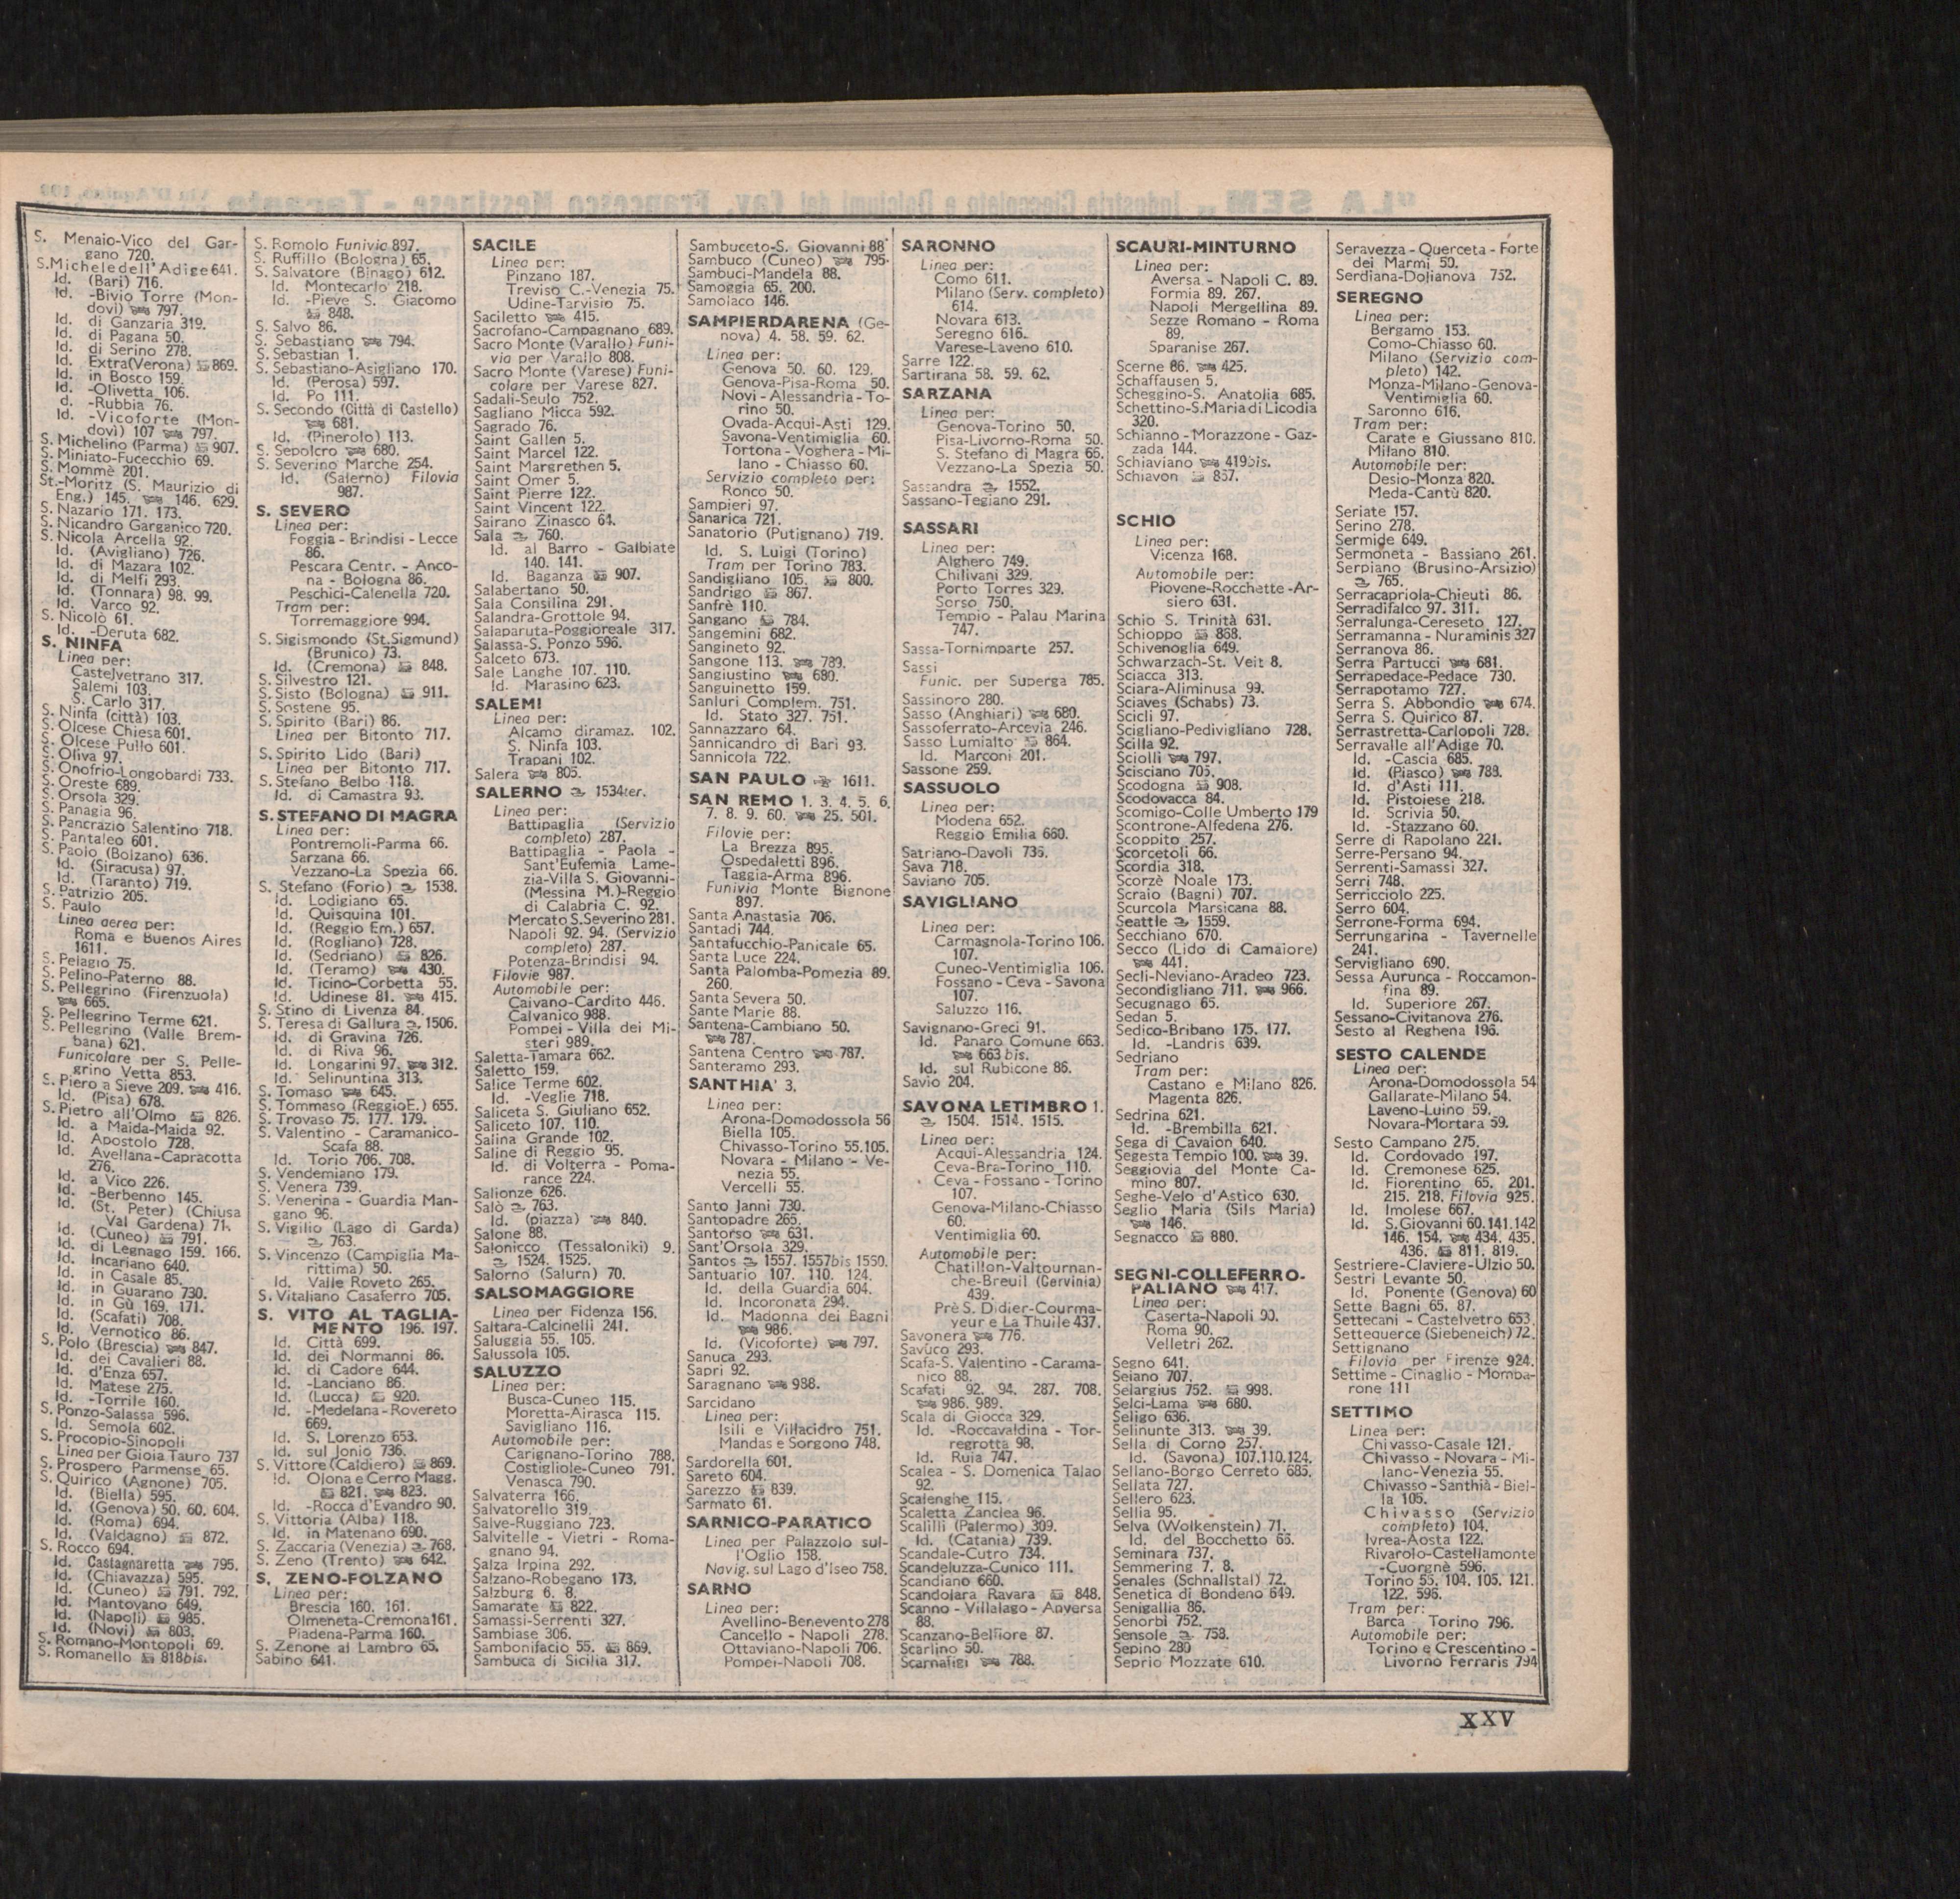 S. Menaio-Vico del Gar-
gano 720.
S.Micheledell'Adige 641.
Id. (Bari) 716.
Id. -Bivio Torre (Mon-
dovì) 797.
Id. di Ganzaria 319.
Id. di Pagana 50.
Id. di Serino 278.
Id. Extra(Verona) 869.
Id. in Bosco 159.
Id. -Olivetta 106.
d. -Rubbia 76.
Id. -Vicoforte (Mon-
dovì) 107 797.
S. Michelino (Parma) 907.
S. Miniato-Fucecchio 69.
S. Mommè 201.
St.-Moritz (S. Maurizio di
Eng.) 145. 146. 629.
S. Nazario 171. 173.
S. Nicandro Garganico 720.
S. Nicola Arcella 92.
Id. (Avigliano) 726.
Id. di Mazara 102.
Id. di Melfi 293.
Id. (Tonnara) 98. 99.
Id. Varco 92.
S. Nicolò 61.
Id. -Deruta 682.
S. NINFA
Linea per:
Castelvetrano 317.
Salemi 103.
S. Carlo 317.
S. Ninfa (città) 103.
S. Olcese Chiesa 601.
S. Olcese Pullo 601.
S. Oliva 97.
S. Onofrio-Longobardi 733.
S. Oreste 689.
S. Orsola 329.
S. Panagia 96.
S. Pancrazio Salentino 718.
S. Pantaleo 601.
S. Paolo (Bolzano) 636.
Id. (Siracusa) 97.
Id. (Taranto) 719.
S. Patrizio 205.
S. Paulo
Linea aerea per:
Roma e Buenos Aires
1611.
S. Pelagio 75.
S. Pelino-Paterno 88.
S. Pellegrino (Firenzuola)
665.
S. Pellegrino Terme 621.
S. Pellegrino (Valle Brem-
bana) 621.
Funicolare per S. Pelle-
grino Vetta 853.
S. Piero a Sieve 209. 416.
Id. (Pisa) 678.
S. Pietro all'Olmo 826.
Id. a Maida-Maida 92.
Id. Apostolo 728.
Id. Avellana-Capracotta
276.
Id. a Vico 226.
Id. -Berbenno 145.
Id. (St. Peter) (Chiusa
Val Gardena) 71.
Id. (Cuneo) 791.
Id. di Legnago 159. 166.
Id. Incariano 640.
Id. in Casale 85.
Id. in Guarano 730.
Id. in Gù 169. 171.
Id. (Scafati) 708.
Id. Vernotico 86.
S. Polo (Brescia) 847.
Id. dei Cavalieri 88.
Id. d'Enza 657.
Id. Matese 275.
Id. -Torrile 160.
S. Ponzo-Salassa 596.
Id. Semola 602.
S. Procopio-Sinopoli
Linea per Gioia Tauro 737
S. Prospero Parmense 65.
S. Quirico (Agnone) 705.
Id. (Biella) 595.
Id. (Genova) 50. 60. 604.
Id. (Roma) 694.
Id. (Valdagno) 872.
S. Rocco 694.
Id. Castagnaretta 795.
Id. (Chiavazza) 595.
Id. (Cuneo) 791. 792.
Id. Mantovano 649.
Id. (Napoli) 985.
Id. (Novi) 803.
S. Romano-Montopoli 69.
S. Romanello 818bis.
S. Romolo Funivia 897.
S. Ruffillo (Bologna) 65.
S. Salvatore (Binago) 612.
Id. Montecarlo 218.
Id. -Pieve S. Giacomo
848.
S. Salvo 86.
S. Sebastiano 794.
S. Sebastian 1.
S. Sebastiano-Asigliano 170.
Id. (Perosa) 597.
Id. Po 111.
S. Secondo (Città di Castello)
681.
Id. (Pinerolo) 113.
S. Sepolcro 680.
S. Severino Marche 254.
Id. (Salerno) Filovia
987.
S. SEVERO
Linea per:
Foggia - Brindisi - Lecce
86.
Pescara Centr. - Anco-
na - Bologna 86.
Peschici-Calenella 720.
Tram per:
Torremaggiore 994.
S. Sigismondo (St.Sigmund)
(Brunico) 73.
Id. (Cremona) 848.
S. Silvestro 121.
S. Sisto (Bologna) 911.
S. Sostene 95.
S. Spirito (Bari) 86.
Linea per Bitonto 717.
S. Spirito Lido (Bari)
Linea per Bitonto 717.
S. Stefano Belbo 118.
Id. di Camastra 93.
S. STEFANO DI MAGRA
Linea per:
Pontremoli-Parma 66.
Sarzana 66.
Vezzano-La Spezia 66.
S. Stefano (Forio) 1538.
Id. Lodigiano 65.
Id. Quisquina 101.
Id. (Reggio Em.) 657.
Id. (Rogliano) 728.
Id. (Sedriano) 826.
Id. (Teramo) 430.
Id. Ticino-Corbetta 55.
Id. Udinese 81. 415.
S. Stino di Livenza 84.
S. Teresa di Gallura 1506.
Id. di Gravina 726.
Id. di Riva 96.
Id. Longarini 97. 312.
Id. Selinuntina 313.
S. Tomaso 645.
S. Tommaso (ReggioE.) 655.
S. Trovaso 75. 177. 179.
S. Valentino - Caramanico-
Scafa 88.
Id. Torio 706. 708.
S. Vendemiano 179.
S. Venera 739.
S. Venerina - Guardia Man-
gano 96.
S. Vigilio (Lago di Garda)
763.
S. Vincenzo (Campiglia Ma-
rittima) 50.
Id. Valle Roveto 265.
S. Vitaliano Casaferro 705.
S. VITO AL TAGLIA-
MENTO 196. 197.
Id. Città 699.
Id. dei Normanni 86.
Id. di Cadore 644.
Id. -Lanciano 86.
Id. (Lucca) 920.
Id. -Medelana-Rovereto
669.
Id. S. Lorenzo 653.
Id. sul Jonio 736.
S. Vittore (Caldiero) 869.
Id. Olona e Cerro Magg.
821. 823.
Id. -Rocca d'Evandro 90.
S. Vittoria (Alba) 118.
Id. in Matenano 690.
S. Zaccaria (Venezia) 768.
S. Zeno (Trento) 642.
S. ZENO-FOLZANO
Linea per:
Brescia 160. 161.
Olmeneta-Cremona 161.
Piadena-Parma 160.
S. Zenone al Lambro 65.
Sabino 641.
SACILE
Linea per:
Pinzano 187.
Treviso C.-Venezia 75.
Udine-Tarvisio 75.
Saciletto 415.
Sacrofano-Campagnano 689.
Sacro Monte (Varallo) Funi-
via per Varallo 808.
Sacro Monte (Varese) Funi-
colare per Varese 827.
Sadali-Seulo 752.
Sagliano Micca 592.
Sagrado 76.
Saint Gallen 5.
Saint Marcel 122.
Saint Margrethen 5.
Saint Omer 5.
Saint Pierre 122.
Saint Vincent 122.
Sairano Zinasco 64.
Sala 760.
Id. al Barro - Galbiate
140. 141.
Id. Baganza 907.
Salabertano 50.
Sala Consilina 291.
Salandra-Grottole 94.
Salaparuta-Poggioreale 317.
Salassa-S. Ponzo 596.
Salceto 673.
Sale Langhe 107. 110.
Id. Marasino 623.
SALEMI
Linea per:
Alcamo diramaz. 102.
S. Ninfa 103.
Trapani 102.
Salera 805.
SALERNO 1534ter.
Linea per:
Battipaglia (Servizio
completo) 287.
Battipaglia - Paola -
Sant'Eufemia Lame-
zia-Villa S. Giovanni-
(Messina M.)-Reggio
di Calabria C. 92.
Mercato S.Severino 281.
Napoli 92. 94. (Servizio
completo) 287.
Potenza-Brindisi 94.
Filovie 987.
Automobile per:
Caivano-Cardito 446.
Calvanico 988.
Pompei - Villa dei Mi-
steri 989.
Saletta-Tamara 662.
Saletto 159.
Salice Terme 602.
Id. -Veglie 718.
Saliceta S. Giuliano 652.
Saliceto 107. 110.
Salina Grande 102.
Saline di Reggio 95.
Id. di Volterra - Poma-
rance 224.
Salionze 626.
Salò 763.
Id. (piazza) 840.
Salone 88.
Salonicco (Tessaloniki) 9.
1524. 1525.
Salorno (Salurn) 70.
SALSOMAGGIORE
Linea per Fidenza 156.
Saltara-Calcinelli 241.
Saluggia 55. 105.
Salussola 105.
SALUZZO
Linea per:
Busca-Cuneo 115.
Moretta-Airasca 115.
Savigliano 116.
Automobile per:
Carignano-Torino 788.
Costigliole-Cuneo 791.
Venasca 790.
Salvaterra 166.
Salvatorello 319.
Salve-Ruggiano 723.
Salvitelle - Vietri - Roma-
gnano 94.
Salza Irpina 292.
Salzano-Robegano 173.
Salzburg 6. 8.
Samarate 822.
Samassi-Serrenti 327.
Sambiase 306.
Sambonifacio 55. 869.
Sambuca di Sicilia 317.
Sambuceto-S. Giovanni 88
Sambuco (Cuneo) 795.
Sambuci-Mandela 88.
Samoggia 65. 200.
Samolaco 146.
SAMPIERDARENA (Ge-
nova) 4. 58. 59. 62.
Linea per:
Genova 50. 60. 129.
Genova-Pisa-Roma 50.
Novi - Alessandria - To-
rino 50.
Ovada-Acqui-Asti 129.
Savona-Ventimiglia 60.
Tortona - Voghera - Mi-
lano - Chiasso 60.
Servizio completo per:
Ronco 50.
Sampieri 97.
Sanarica 721.
Sanatorio (Putignano) 719.
Id. S. Luigi (Torino)
Tram per Torino 783.
Sandigliano 105. 800.
Sandrigo 867.
Sanfrè 110.
Sangano 784.
Sangemini 682.
Sangineto 92.
Sangone 113. 789.
Sangiustino 680.
Sanguinetto 159.
Sanluri Complem. 751.
Id. Stato 327. 751.
Sannazzaro 64.
Sannicandro di Bari 93.
Sannicola 722.
SAN PAULO 1611.
SAN REMO 1. 3. 4. 5. 6.
7. 8. 9. 60. 25. 501.
Filovie per:
La Brezza 895.
Ospedaletti 896.
Taggia-Arma 896.
Funivia Monte Bignone
897.
Santa Anastasia 706.
Santadi 744.
Santafucchio-Panicale 65.
Santa Luce 224.
Santa Palomba-Pomezia 89.
260.
Santa Severa 50.
Sante Marie 88.
Santena-Cambiano 50.
787.
Santena Centro 787.
Santeramo 293.
SANTHIA' 3.
Linea per:
Arona-Domodossola 56
Biella 105.
Chivasso-Torino 55.105.
Novara - Milano - Ve-
nezia 55.
Vercelli 55.
Santo Janni 730.
Santopadre 265.
Santorso 631.
Sant'Orsola 329.
Santos 1557. 1557bis 1550.
Santuario 107. 110. 124.
Id. della Guardia 604.
Id. Incoronata 294.
Id. Madonna dei Bagni
986.
Id. (Vicoforte) 797.
Sanuca 293.
Sapri 92.
Saragnano 988.
Sarcidano
Linea per:
Isili e Villacidro 751.
Mandas e Sorgono 748.
Sardorella 601.
Sareto 604.
Sarezzo 839.
Sarmato 61.
SARNICO-PARATICO
Linea per Palazzolo sul-
l'Oglio 158.
Navig. sul Lago d'Iseo 758.
SARNO
Linea per:
Avellino-Benevento 278
Cancello - Napoli 278.
Ottaviano-Napoli 706.
Pompei-Napoli 708.
SARONNO
Linea per:
Como 611.
Milano (Serv. completo)
614.
Novara 613.
Seregno 616.
Varese-Laveno 610.
Sarre 122.
Sartirana 58. 59. 62.
SARZANA
Linea per:
Genova-Torino 50.
Pisa-Livorno-Roma 50.
S. Stefano di Magra 66.
Vezzano-La Spezia 50.
Sassandra 1552.
Sassano-Tegiano 291.
SASSARI
Linea per:
Alghero 749.
Chilivani 329.
Porto Torres 329.
Sorso 750.
Tempio - Palau Marina
747.
Sassa-Tornimparte 257.
Sassi
Funic. per Superga 785.
Sassinoro 280.
Sasso (Anghiari) 680.
Sassoferrato-Arcevia 246.
Sasso Lumialto 864.
Id. Marconi 201.
Sassone 259.
SASSUOLO
Linea per:
Modena 652.
Reggio Emilia 660.
Satriano-Davoli 735.
Sava 718.
Saviano 705.
SAVIGLIANO
Linea per:
Carmagnola-Torino 106.
107.
Cuneo-Ventimiglia 106.
Fossano - Ceva - Savona
107.
Saluzzo 116.
Savignano-Greci 91.
Id. Panaro Comune 663.
663 bis.
Id. sul Rubicone 86.
Savio 204.
SAVONA LETIMBRO 1.
1504. 1514. 1515.
Linea per:
Acqui-Alessandria 124.
Ceva-Bra-Torino 110.
Ceva - Fossano - Torino
107.
Genova-Milano-Chiasso
60.
Ventimiglia 60.
Automobile per:
Chatillon-Valtournan-
che-Breuil (Cervinia)
439.
Prè S. Didier-Courma-
yeur e La Thuile 437.
Savonera 776.
Savuco 293.
Scafa-S. Valentino - Carama-
nico 88.
Scafati 92. 94. 287. 708.
986. 989.
Scala di Giocca 329.
Id. -Roccavaldina - Tor-
regrotta 98.
Id. Ruia 747.
Scalea - S. Domenica Talao
92.
Scalenghe 115.
Scaletta Zanclea 96.
Scalilli (Palermo) 309.
Id. (Catania) 739.
Scandale-Cutro 734.
Scandeluzza-Cunico 111.
Scandiano 660.
Scandolara Ravara 848.
Scanno - Villalago - Anversa
88.
Scanzano-Belfiore 87.
Scarlino 50.
Scarnafigi 788.
SCAURI-MINTURNO
Linea per:
Aversa - Napoli C. 89.
Formia 89. 267.
Napoli Mergellina 89.
Sezze Romano - Roma
89.
Sparanise 267.
Scerne 86. 425.
Schaffausen 5.
Scheggino-S. Anatolia 685.
Schettino-S.Maria di Licodia
320.
Schianno - Morazzone - Gaz-
zada 144.
Schiaviano 419bis.
Schiavon 857.
SCHIO
Linea per:
Vicenza 168.
Automobile per:
Piovene-Rocchette-Ar-
siero 631.
Schio S. Trinità 631.
Schioppo 868.
Schivenoglia 649.
Schwarzach-St. Veit 8.
Sciacca 313.
Sciara-Aliminusa 99.
Sciaves (Schabs) 73.
Scicli 97.
Scigliano-Pedivigliano 728.
Scilla 92.
Sciolli 797.
Scisciano 705.
Scodogna 908.
Scodovacca 84.
Scomigo-Colle Umberto 179
Scontrone-Alfedena 276.
Scoppito 257.
Scorcetoli 66.
Scordia 318.
Scorzè Noale 173.
Scraio (Bagni) 707.
Scurcola Marsicana 88.
Seattle 1559.
Secchiano 670.
Secco (Lido di Camaiore)
441.
Seclì-Neviano-Aradeo 723.
Secondigliano 711. 966.
Secugnago 65.
Sedan 5.
Sedico-Bribano 175. 177.
Id. -Landris 639.
Sedriano
Tram per:
Castano e Milano 826.
Magenta 826.
Sedrina 621.
Id. -Brembilla 621.
Sega di Cavaion 640.
Segesta Tempio 100. 39.
Seggiovia del Monte Ca-
mino 807.
Seghe-Velo d'Astico 630.
Seglio Maria (Sils Maria)
146.
Segnacco 880.
SEGNI-COLLEFERRO-
PALIANO 417.
Linea per:
Caserta-Napoli 90.
Roma 90.
Velletri 262.
Segno 641.
Seiano 707.
Selargius 752. 998.
Selci-Lama 680.
Seligo 636.
Selinunte 313. 39.
Sella di Corno 257.
Id. (Savona) 107.110.124.
Sellano-Borgo Cerreto 685.
Sellata 727.
Sellero 623.
Sellia 95.
Selva (Wolkenstein) 71.
Id. del Bocchetto 65.
Seminara 737.
Semmering 7. 8.
Senales (Schnalstal) 72.
Senetica di Bondeno 649.
Senigallia 86.
Senorbì 752.
Sensole 758.
Sepino 280
Seprio Mozzate 610.
Seravezza - Querceta - Forte
dei Marmi 50.
Serdiana-Dolianova 752.
SEREGNO
Linea per:
Bergamo 153.
Como-Chiasso 60.
Milano (Servizio com-
pleto) 142.
Monza-Milano-Genova-
Ventimiglia 60.
Saronno 616.
Tram per:
Carate e Giussano 810.
Milano 810.
Automobile per:
Desio-Monza 820.
Meda-Cantù 820.
Seriate 157.
Serino 278.
Sermide 649.
Sermoneta - Bassiano 261.
Serpiano (Brusino-Arsizio)
765.
Serracapriola-Chieuti 86.
Serradifalco 97. 311.
Serralunga-Cereseto 127.
Serramanna - Nuraminis 327
Serranova 86.
Serra Partucci 681.
Serrapedace-Pedace 730.
Serrapotamo 727.
Serra S. Abbondio 674.
Serra S. Quirico 87.
Serrastretta-Carlopoli 728.
Serravalle all'Adige 70.
Id. -Cascia 685.
Id. (Piasco) 788.
Id. d'Asti 111.
Id. Pistoiese 218.
Id. Scrivia 50.
Id. -Stazzano 60.
Serre di Rapolano 221.
Serre-Persano 94.
Serrenti-Samassi 327.
Serri 748.
Serricciolo 225.
Serro 604.
Serrone-Forma 694.
Serrungarina - Tavernelle
241.
Servigliano 690.
Sessa Aurunca - Roccamon-
fina 89.
Id. Superiore 267.
Sessano-Civitanova 276.
Sesto al Reghena 196.
SESTO CALENDE
Linea per:
Arona-Domodossola 54
Gallarate-Milano 54.
Laveno-Luino 59.
Novara-Mortara 59.
Sesto Campano 275.
Id. Cordovado 197.
Id. Cremonese 625.
Id. Fiorentino 65. 201.
215. 218. Filovia 925.
Id. Imolese 667.
Id. S.Giovanni 60.141.142
146. 154. 434. 435.
436. 811. 819.
Sestriere-Claviere-Ulzio 50.
Sestri Levante 50.
Id. Ponente (Genova) 60
Sette Bagni 65. 87.
Settecani - Castelvetro 653.
Settequerce (Siebeneich) 72.
Settignano
Filovia per Firenze 924.
Settime - Cinaglio - Momba-
rone 111
SETTIMO
Linea per:
Chivasso-Casale 121.
Chivasso - Novara - Mi-
lano-Venezia 55.
Chivasso -Santhià- Biel-
la 105.
Chivasso (Servizio
completo) 104.
Ivrea-Aosta 122.
Rivarolo-Castellamonte
-Cuorgnè 596.
Torino 55. 104. 105. 121.
122. 596.
Tram per:
Barca - Torino 796.
Automobile per:
Torino e Crescentino -
Livorno Ferraris 794
XXV